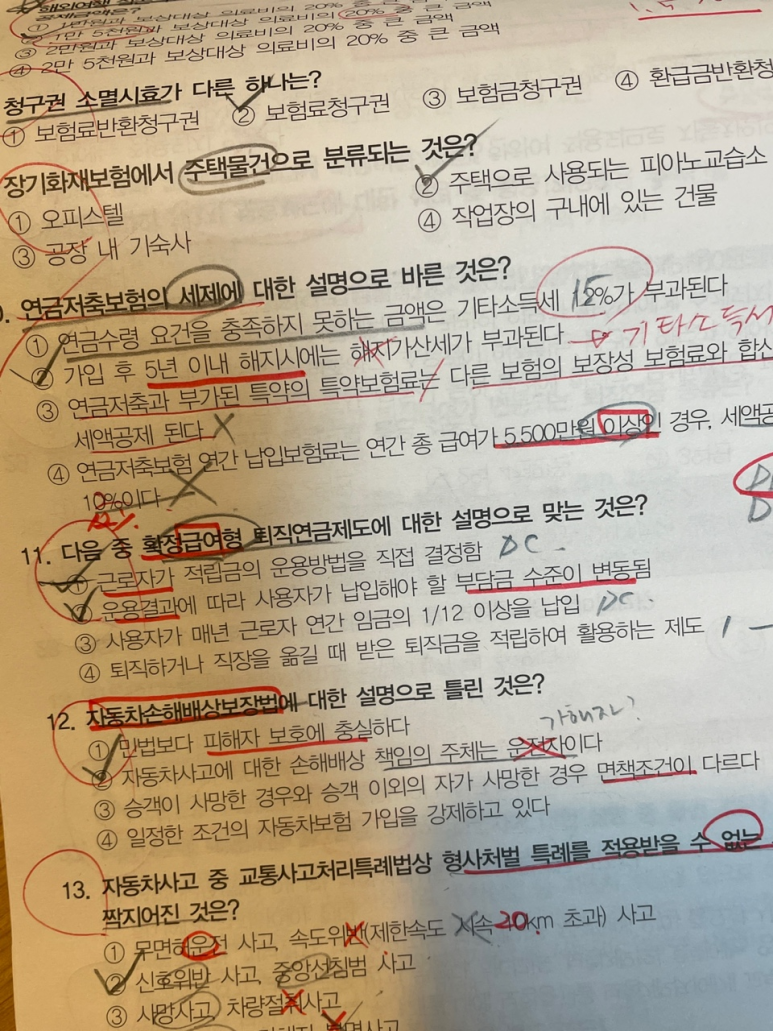 ① 1만원과 보상대상 의료비의 20% 중 큰 금액
② 1만 5천원과 보상대상 의료비의 20% 중 큰 금액
③ 2만원과 보상대상 의료비의 20% 중 큰 금액
④ 2만 5천원과 보상대상 의료비의 20% 중 큰 금액
청구권 소멸시효가 다른 하나는?
① 보험료반환청구권 ② 보험료청구권 ③ 보험금청구권 ④ 환급금반환청
장기화재보험에서 주택물건으로 분류되는 것은?
① 오피스텔 ② 주택으로 사용되는 피아노교습소
③ 공장 내 기숙사 ④ 작업장의 구내에 있는 건물
연금저축보험의 세제에 대한 설명으로 바른 것은?
① 연금수령 요건을 충족하지 못하는 금액은 기타소득세 15%가 부과된다
② 가입 후 5년 이내 해지시에는 해지가산세가 부과된다 기타소득세
③ 연금저축과 부가된 특약의 특약보험료는 다른 보험의 보장성 보험료와 합산
세액공제 된다
④ 연금저축보험 연간 납입보험료는 연간 총 급여가 5,500만원 이상인 경우, 세액공
10%이다
12%
11. 다음 중 확정급여형 퇴직연금제도에 대한 설명으로 맞는 것은?
① 근로자가 적립금의 운용방법을 직접 결정함 DC
② 운용결과에 따라 사용자가 납입해야 할 부담금 수준이 변동됨
③ 사용자가 매년 근로자 연간 임금의 1/12 이상을 납입 DC
④ 퇴직하거나 직장을 옮길 때 받은 퇴직금을 적립하여 활용하는 제도
12. 자동차손해배상보장법에 대한 설명으로 틀린 것은?
① 민법보다 피해자 보호에 충실하다 가해자?
② 자동차사고에 대한 손해배상 책임의 주체는 운전자이다
③ 승객이 사망한 경우와 승객 이외의 자가 사망한 경우 면책조건이 다르다
④ 일정한 조건의 자동차보험 가입을 강제하고 있다
13. 자동차사고 중 교통사고처리특례법상 형사처벌 특례를 적용받을 수 없는
짝지어진 것은?
① 무면허운전 사고, 속도위반(제한속도 시속 20km 초과) 사고
② 신호위반 사고, 중앙선침범 사고
③ 사망사고, 차량절취사고